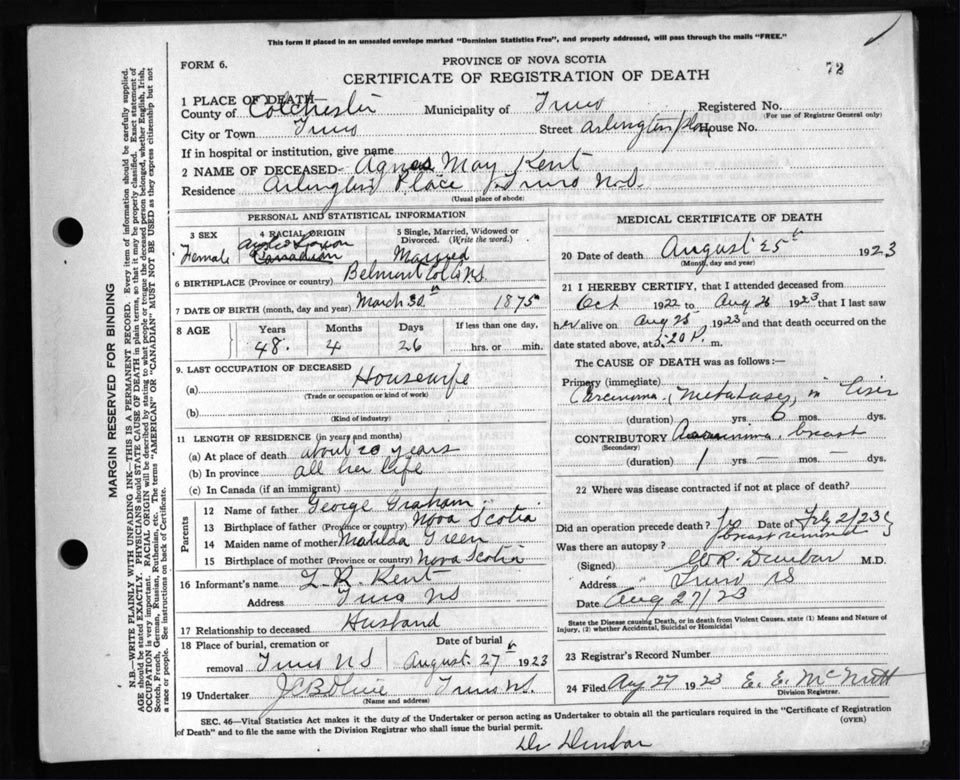 This form if placed in an unsealed envelope marked "Dominion Statistics Free", and properly addressed, will pass through the mails "FREE."
FORM 6.
PROVINCE OF NOVA SCOTIA
CERTIFICATE OF REGISTRATION OF DEATH
72
1 PLACE OF DEATH—
County of Colchester Municipality of Truro Registered No.
(For use of Registrar General only)
City or Town Truro Street Arlington Place House No.
If in hospital or institution, give name
2 NAME OF DECEASED- Agnes May Kent
Residence Arlington Place Truro N.S.
(Usual place of abode)
PERSONAL AND STATISTICAL INFORMATION
3 SEX
Female
4 RACIAL ORIGIN
Anglo Saxon
Canadian
5 Single, Married, Widowed or Divorced. (Write the word.)
Married
6 BIRTHPLACE (Province or country) Belmont Col. Co. N.S.
7 DATE OF BIRTH (month, day and year) March 30th 1875
8 AGE
Years Months Days If less than one day,
48. 4 26 hrs. or min.
9. LAST OCCUPATION OF DECEASED
(a) Housewife
(Trade or occupation or kind of work)
(b)
(Kind of industry)
11 LENGTH OF RESIDENCE (in years and months)
(a) At place of death about 20 years
(b) In province all her life
(c) In Canada (if an immigrant)
Parents
12 Name of father George Graham
13 Birthplace of father (Province or country) Nova Scotia
14 Maiden name of mother Matilda Green
15 Birthplace of mother (Province or country) Nova Scotia
16 Informant's name L. R. Kent
Address Truro NS
17 Relationship to deceased Husband
18 Place of burial, cremation or removal Truro NS
Date of burial August 27th 1923
19 Undertaker Truro NS.
(Name and address)
MEDICAL CERTIFICATE OF DEATH
20 Date of death August 25th 1923
(Month, day and year)
21 I HEREBY CERTIFY, that I attended deceased from
Oct 1922 to Aug 25 1923 that I last saw
her alive on Aug 25 1923 and that death occurred on the
date stated above, at 5:20 P. m.
The CAUSE OF DEATH was as follows:—
Primary (immediate)
Carcinoma, Metastases, in Liver
(duration) yrs 6 mos. dys.
CONTRIBUTORY Carcinoma breast
(Secondary)
(duration) 1 yrs — mos. — dys.
22 Where was disease contracted if not at place of death?
Did an operation precede death? Yes Date of Feby 2/23
breast removed
Was there an autopsy?
(Signed) Dunbar M.D.
Address Truro NS
Date Aug 27/23
State the Disease causing Death, or in death from Violent Causes, state (1) Means and Nature of
Injury, (2) whether Accidental, Suicidal or Homicidal
23 Registrar's Record Number
24 Filed Aug 27 1923 E. E. McNutt
Division Registrar.
SEC. 46—Vital Statistics Act makes it the duty of the Undertaker or person acting as Undertaker to obtain all the particulars required in the "Certificate of Registration
of Death" and to file the same with the Division Registrar who shall issue the burial permit.
(OVER)
Dr Dunbar
MARGIN RESERVED FOR BINDING
N.B.—WRITE PLAINLY WITH UNFADING INK—THIS IS A PERMANENT RECORD. Every item of information should be carefully supplied.
AGE should be stated EXACTLY. PHYSICIANS should STATE CAUSE OF DEATH in plain terms, so that it may be properly classified. Exact statement of
OCCUPATION is very important. RACIAL ORIGIN will be described by stating to what people or tongue the deceased person belonged, whether English, Irish,
Scotch, French, German, Russian, Ruthenian, etc. The terms "AMERICAN" OR "CANADIAN" MUST NOT BE USED as they express citizenship but not
a race or people. See instructions on back of Certificate.